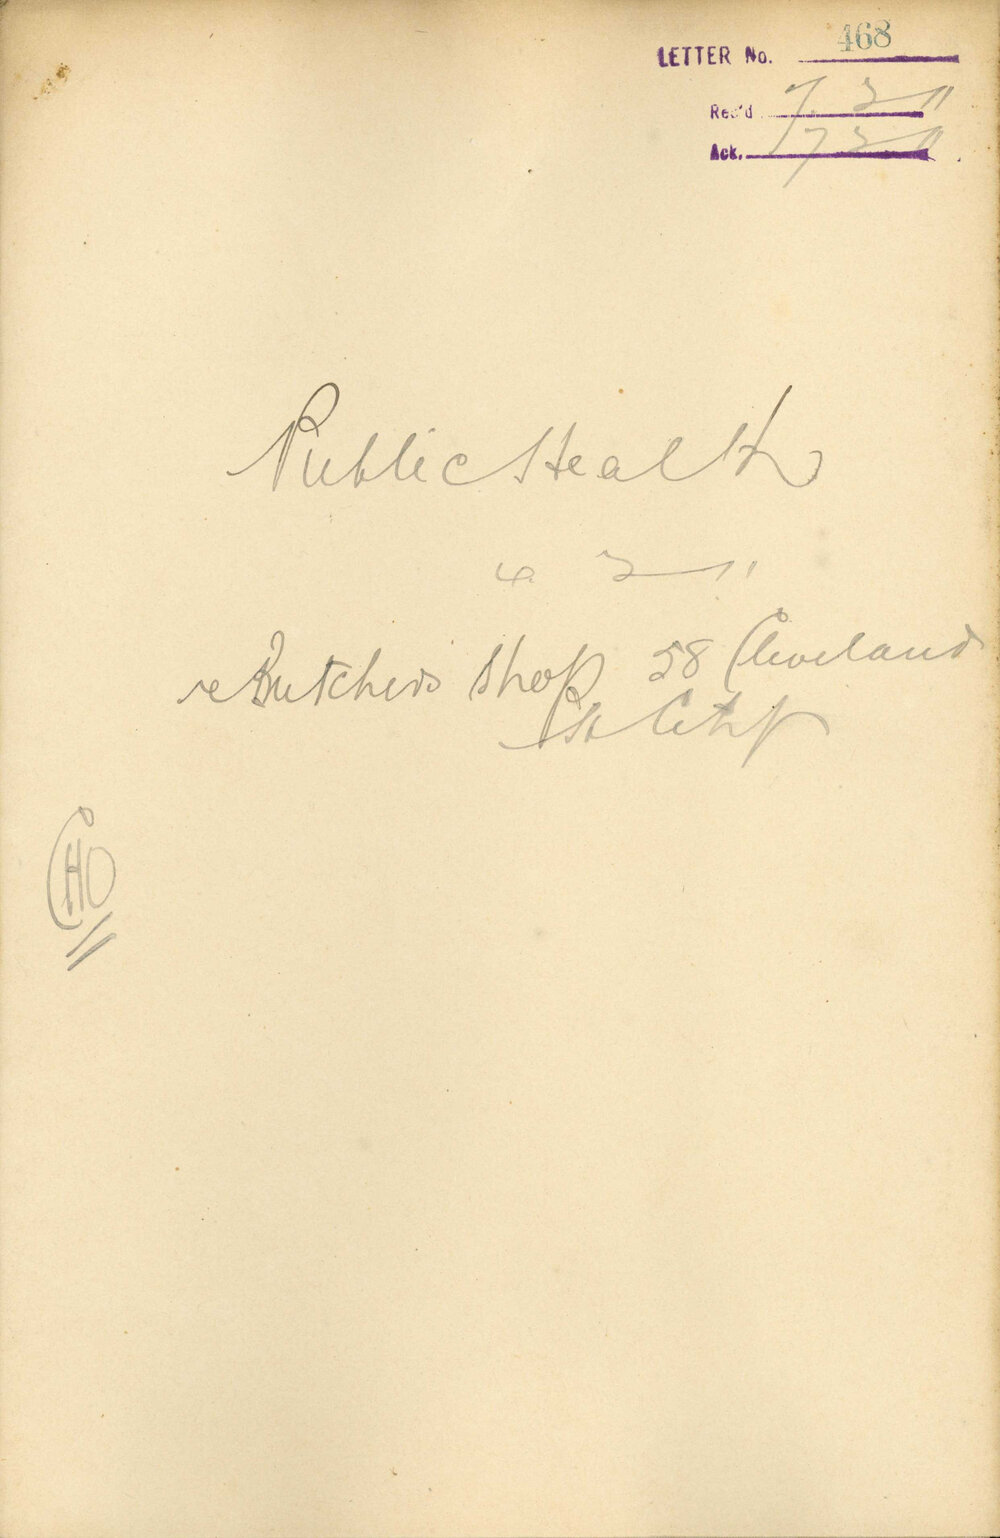 LETTER No. 468
Rec'd 7. 2 11
Ack. 7 2 11
Public Health
6. 2 11
re Butchers Shop 58 Cleveland
St City
CHO